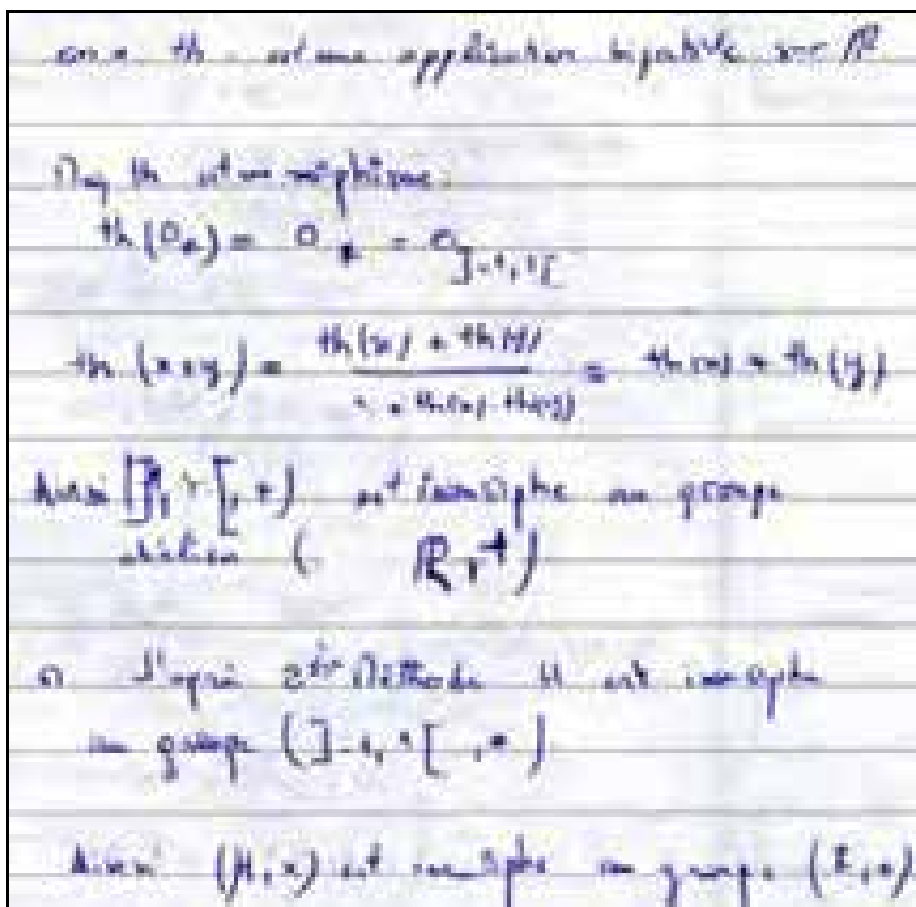 on a th est une application bijective sur ℝ
Mq th est un morphisme.
th(0ℝ) = 0ℝ = 0]-1,1[
th(x+y) = th(x) + th(y) / 1 + th(x).th(y) = th(x) * th(y)
Ainsi (]-1,1[, *) est isomorphe au groupe
abélien (ℝ,+)
d'après 2ème Méthode H est isomorphe
au groupe (]-1,1[, *)
Ainsi (H,×) est isomorphe au groupe